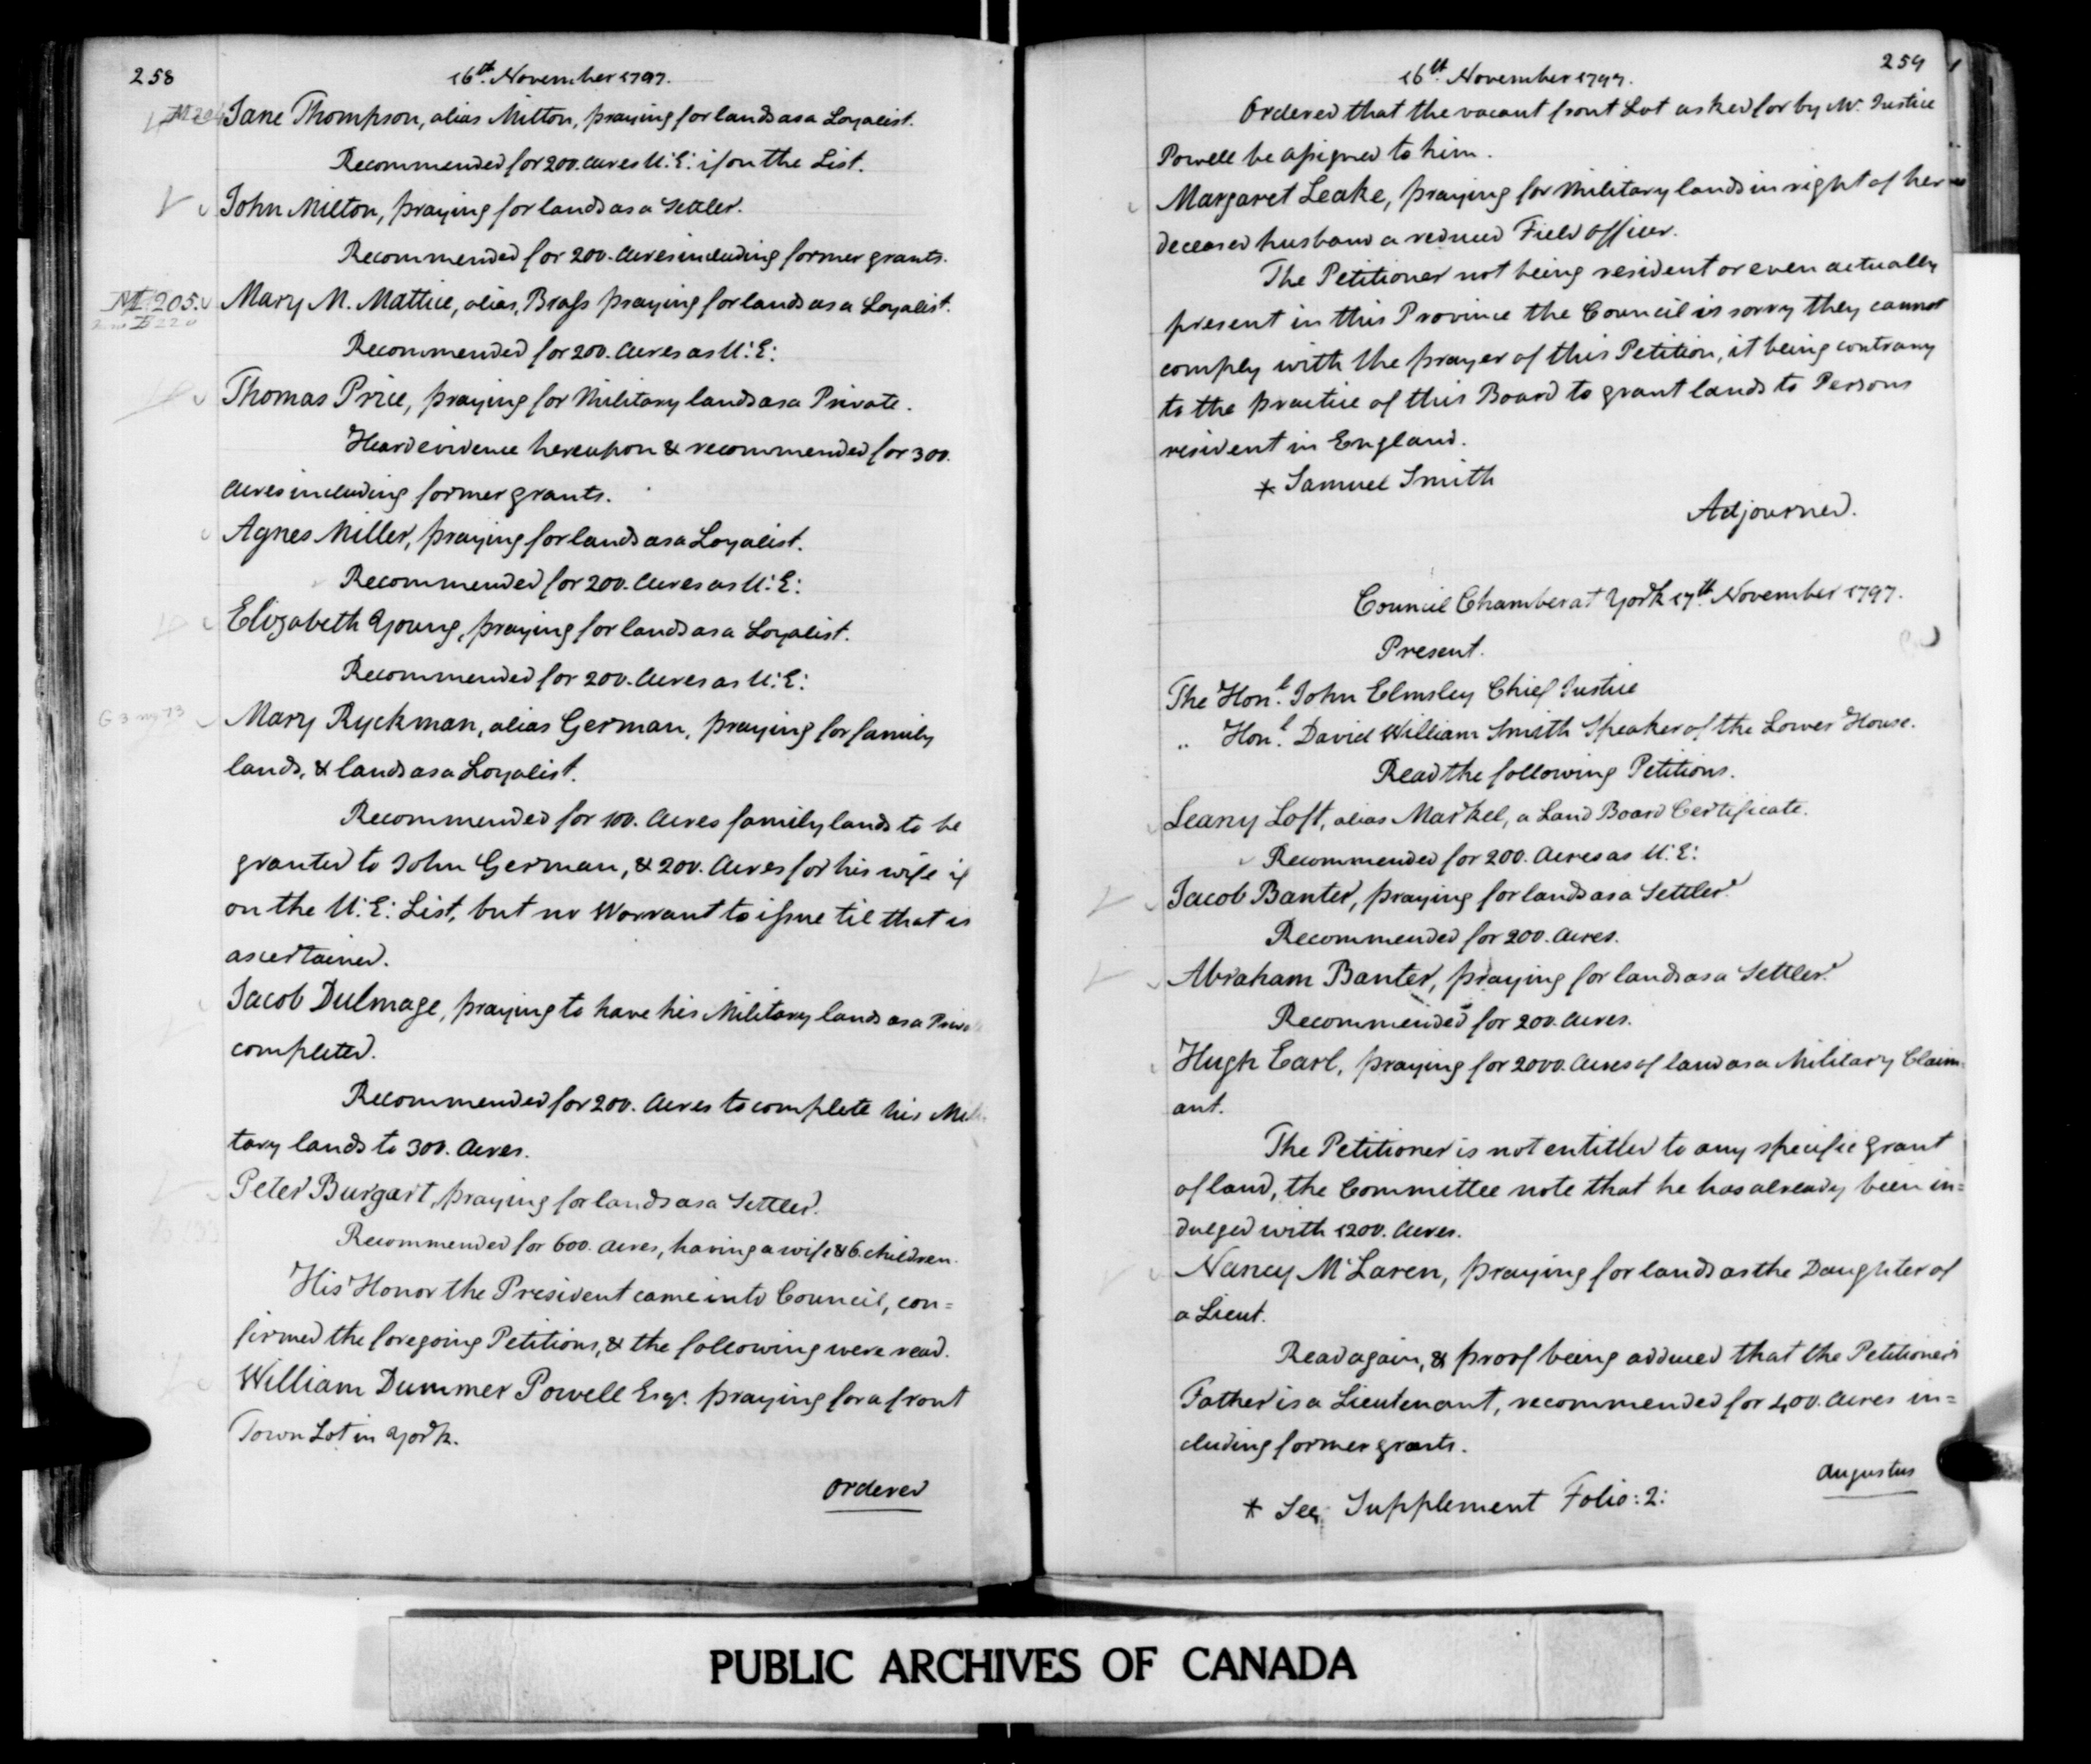 258
16th November 1797.
Jane Thompson, alias Milton, praying for lands as a Loyalist.
Recommended for 200. Acres U: E: if on the List.
John Milton, praying for lands as a Settler.
Recommended for 200. Acres including former grants.
M 205. Mary M. Mattice, alias, Brass praying for lands as a Loyalist.
Recommended for 200. Acres as U: E:
Thomas Price, praying for Military lands as a Private.
Heard evidence hereupon & recommended for 300.
Acres including former grants.
Agnes Miller, praying for lands as a Loyalist.
Recommended for 200. Acres as U: E:
Elizabeth Young, praying for lands as a Loyalist.
Recommended for 200. Acres as U: E:
Mary Ryckman, alias German, praying for family
lands, & lands as a Loyalist.
Recommended for 100. Acres family lands to be
granted to John German, & 200. Acres for his wife if
on the U: E: List, but no Warrant to issue til that is
ascertained.
Jacob Dulmage, praying to have his Military lands as a Private
completed.
Recommended for 200. Acres to complete his Mili
tary lands to 300. Acres.
Peter Burgart, praying for lands as a Settler.
Recommended for 600. Acres, having a wife & 6. children.
His Honor the President came into Council, con=
firmed the foregoing Petitions, & the following were read.
William Dummer Powell Esqr. praying for a front
Town Lot in York.
Ordered
259
16th November 1797.
Ordered that the vacant front Lot asked for by Mr. Justice
Powell be assigned to him.
Margaret Leake, praying for Military lands in right of her
deceased husband a reduced Field Officer.
The Petitioner not being resident or even actually
present in this Province the Council is sorry they cannot
comply with the prayer of this Petition, it being contrary
to the practice of this Board to grant lands to Persons
resident in England.
* Samuel Smith
Adjourned.
Council Chamber at York 17th November 1797.
Present.
The Honl. John Elmsley Chief Justice
,, Honl. David William Smith Speaker of the Lower House.
Read the following Petitions.
Leany Loft, alias Markel, a Land Board Certificate.
Recommended for 200. Acres as U: E:
Jacob Banter, praying for lands as a Settler.
Recommended for 200. Acres.
Abraham Banter, praying for lands as a Settler.
Recommended for 200. Acres.
Hugh Earl, praying for 2000. Acres of land as a Military Claim=
ant.
The Petitioner is not entitled to any specific grant
of land, the Committee note that he has already been in=
dulged with 1200. Acres.
Nancy McLaren, praying for lands as the Daughter of
a Lieut.
Read again, & proof being adduced that the Petitioner's
Father is a Lieutenant, recommended for 400. Acres in=
cluding former grants.
Augustus
* See Supplement Folio: 2:
PUBLIC ARCHIVES OF CANADA